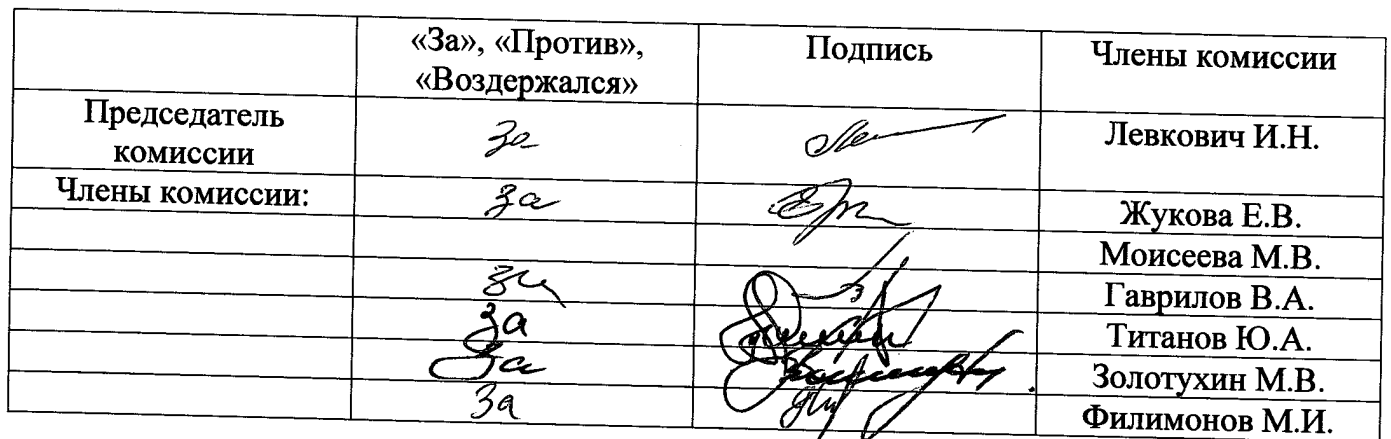 «За», «Против», «Воздержался» Подпись Члены комиссии
Председатель комиссии за Левкович И.Н.
Члены комиссии: за Жукова Е.В.
Моисеева М.В.
за Гаврилов В.А.
за Титанов Ю.А.
За Золотухин М.В.
За Филимонов М.И.